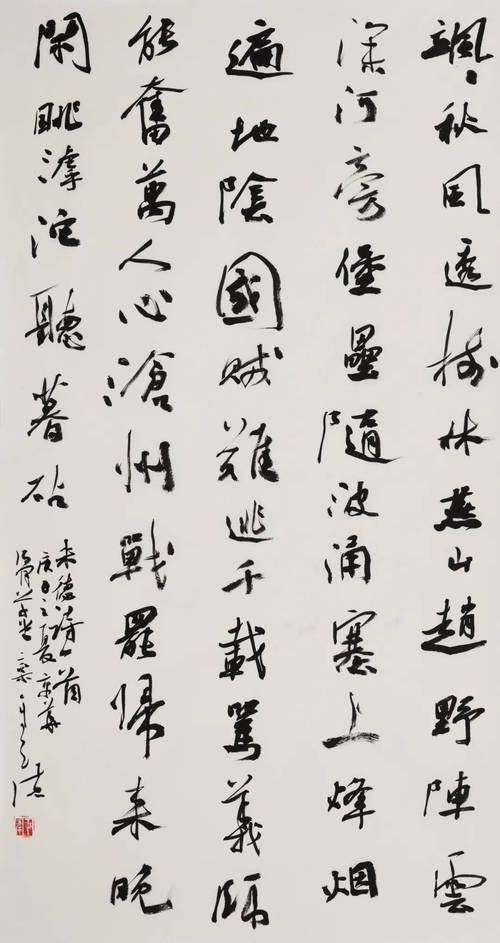 颯〻秋風透樹林燕山趙野陣雲
深河旁堡壘隨波涌塞上烽烟
遍地陰國賊難逃千載罵義師
能奮萬人心滄州戰罷歸来晚
閑眺滹沱聽暮砧
朱德詩一首
之夏京華